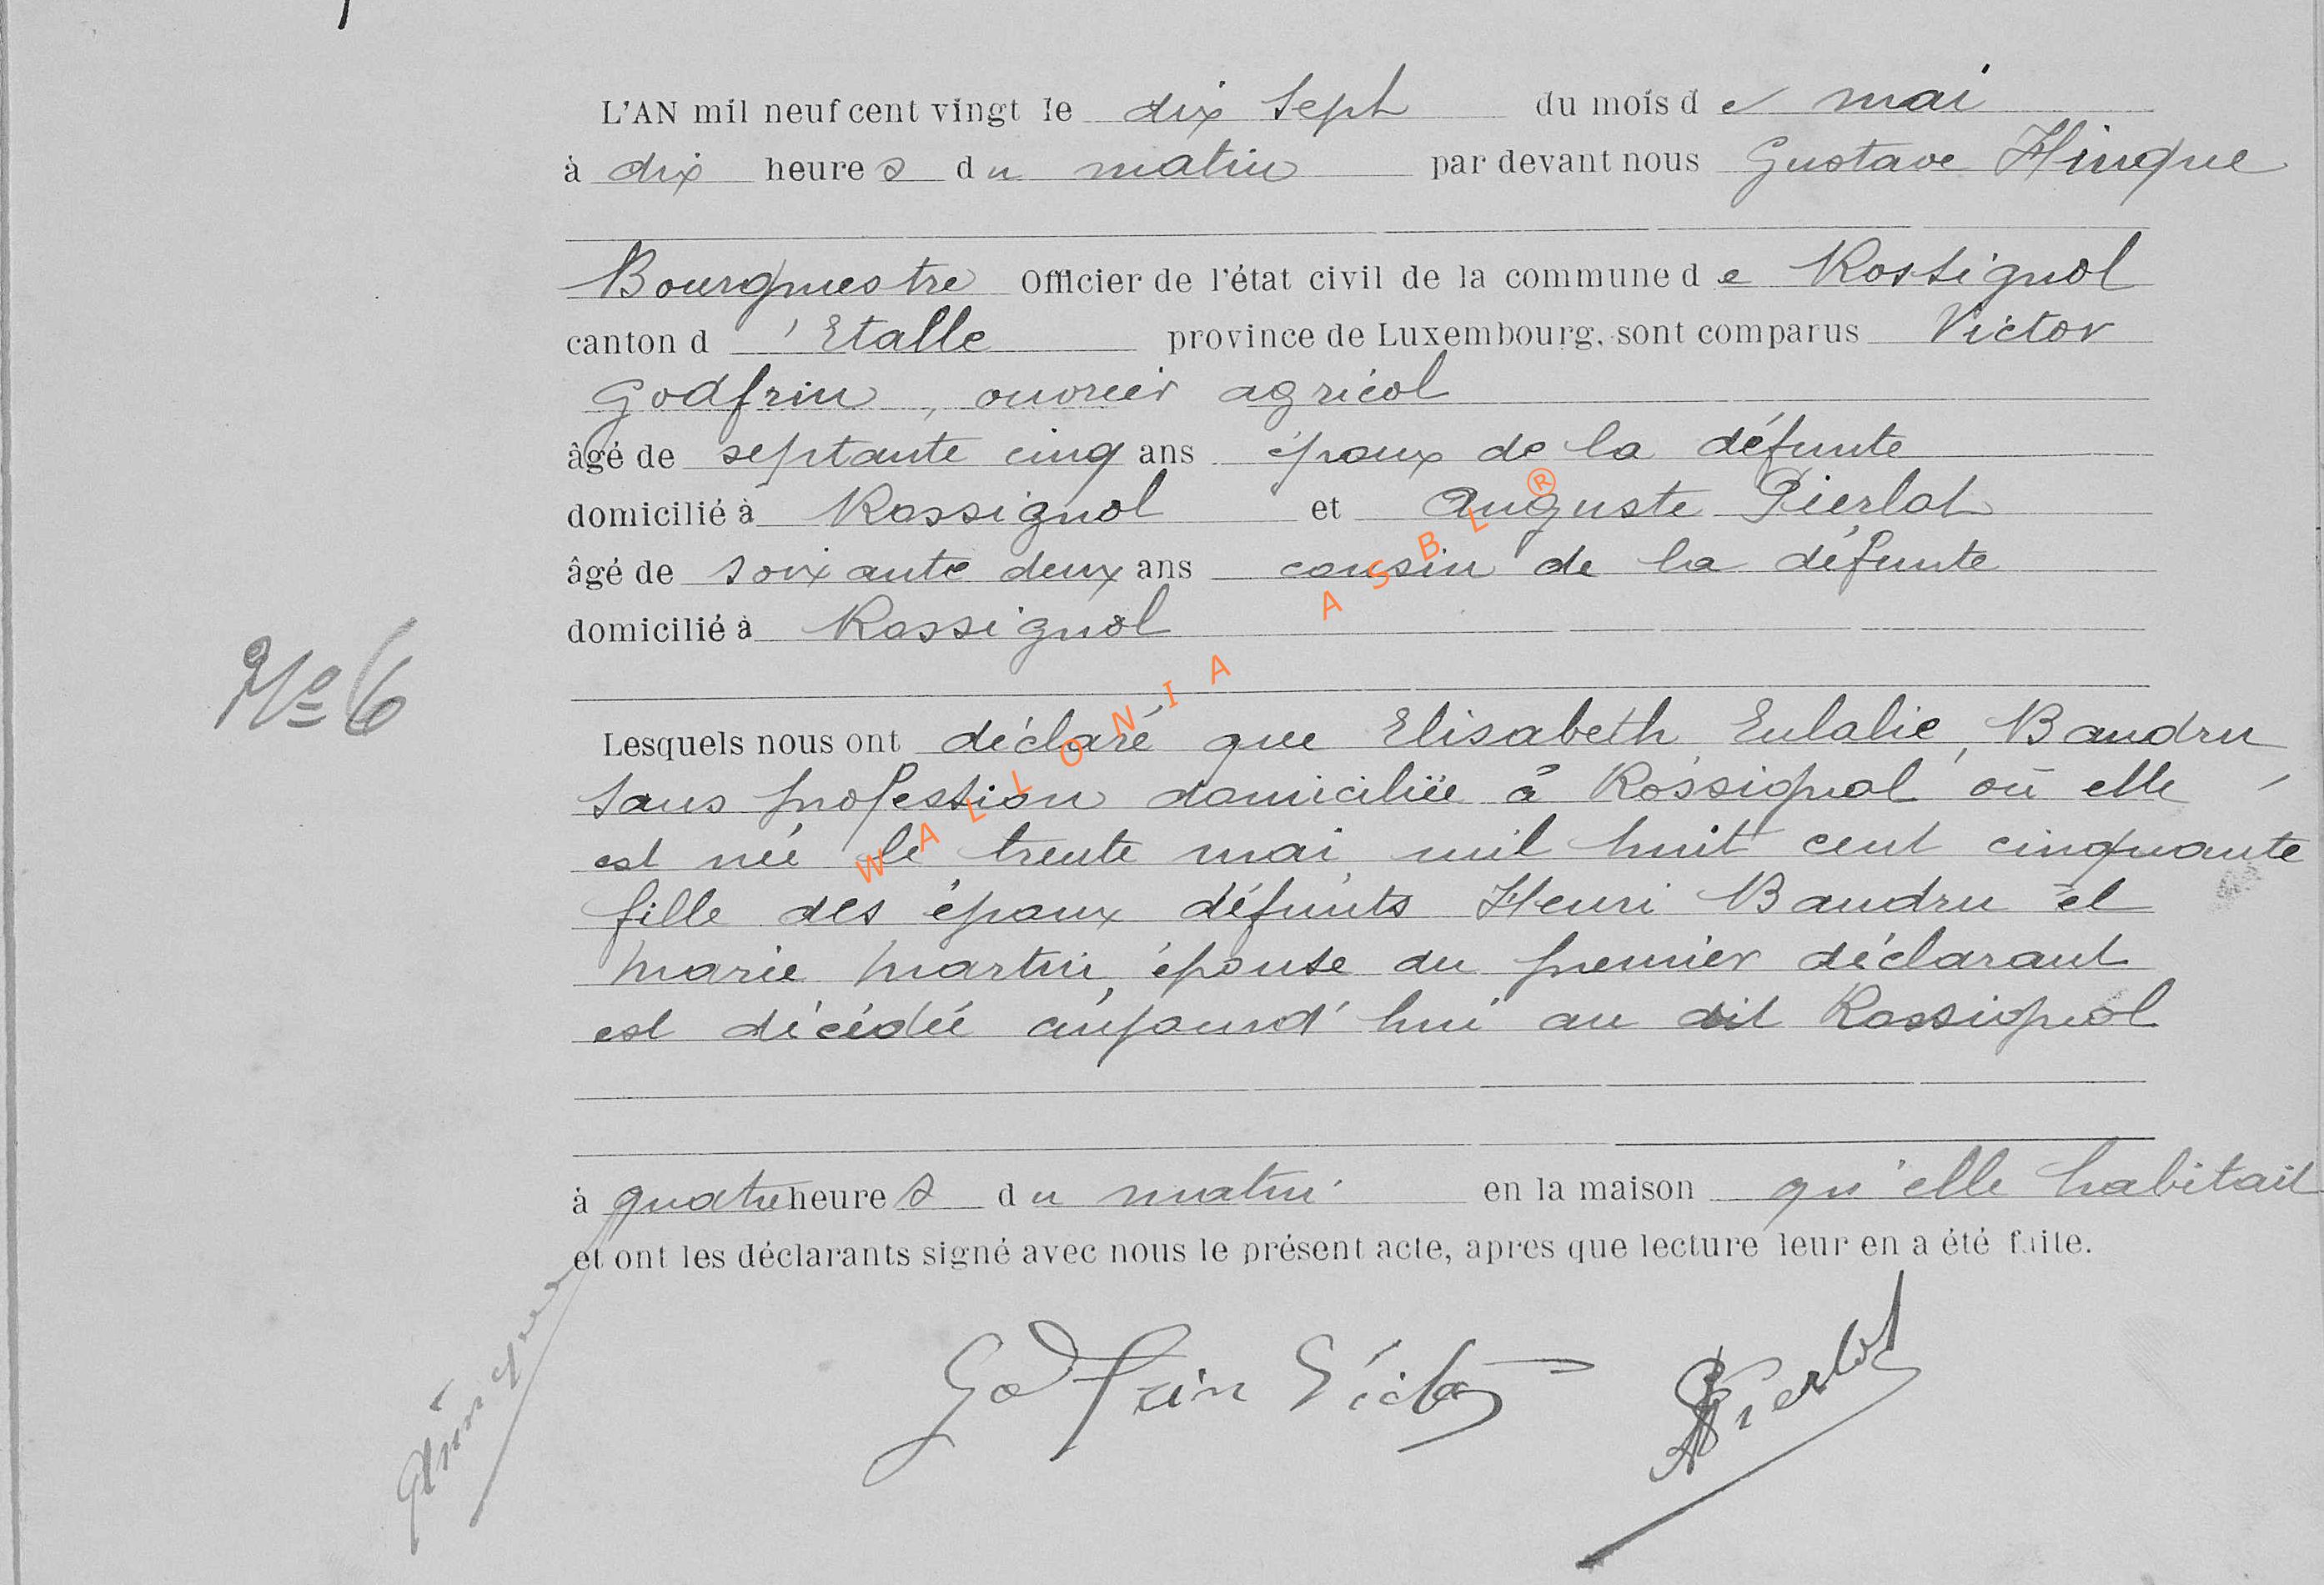 L'AN mil neuf cent vingt le dix sept du mois de mai
à dix heures du matin par devant nous Gustave Hinque
Bourgmestre Officier de l'état civil de la commune de Rossignol
canton d'Etalle province de Luxembourg, sont comparus Victor
Godfrin, ouvrier agricol
âgé de septante cinq ans époux de la défunte
domicilié à Rossignol et Auguste Pierlot
âgé de soixante deux ans cousin de la défunte
domicilié à Rossignol
No 6
Lesquels nous ont déclaré que Elisabeth Eulalie, Baudru
sans profession domiciliée à Rossignol où elle
est née le trente mai mil huit cent cinquante
fille des époux défunts Henri Baudru et
Marie Martin, épouse du premier déclarant
est décédée aujourd'hui au dit Rossignol
à quatre heures du matin en la maison qu'elle habitait
et ont les déclarants signé avec nous le présent acte, apres que lecture leur en a été faite.
Godfrin Victor
APierlot
GHinque
WALLONIA ASBL ®